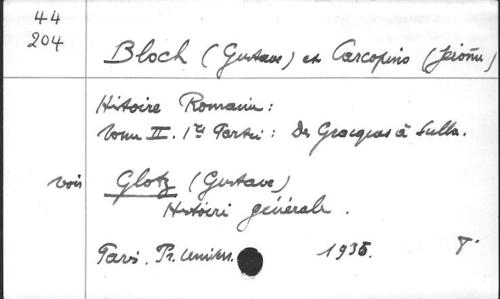 44
204
Bloch (Gustave) et Carcopino (Jérôme)
Histoire Romaine :
Tome II. 1re Partie : Des Gracques à Sulla.
voir Glotz (Gustave)
Histoire générale.
Paris. Pr. Univers. 1935. T.